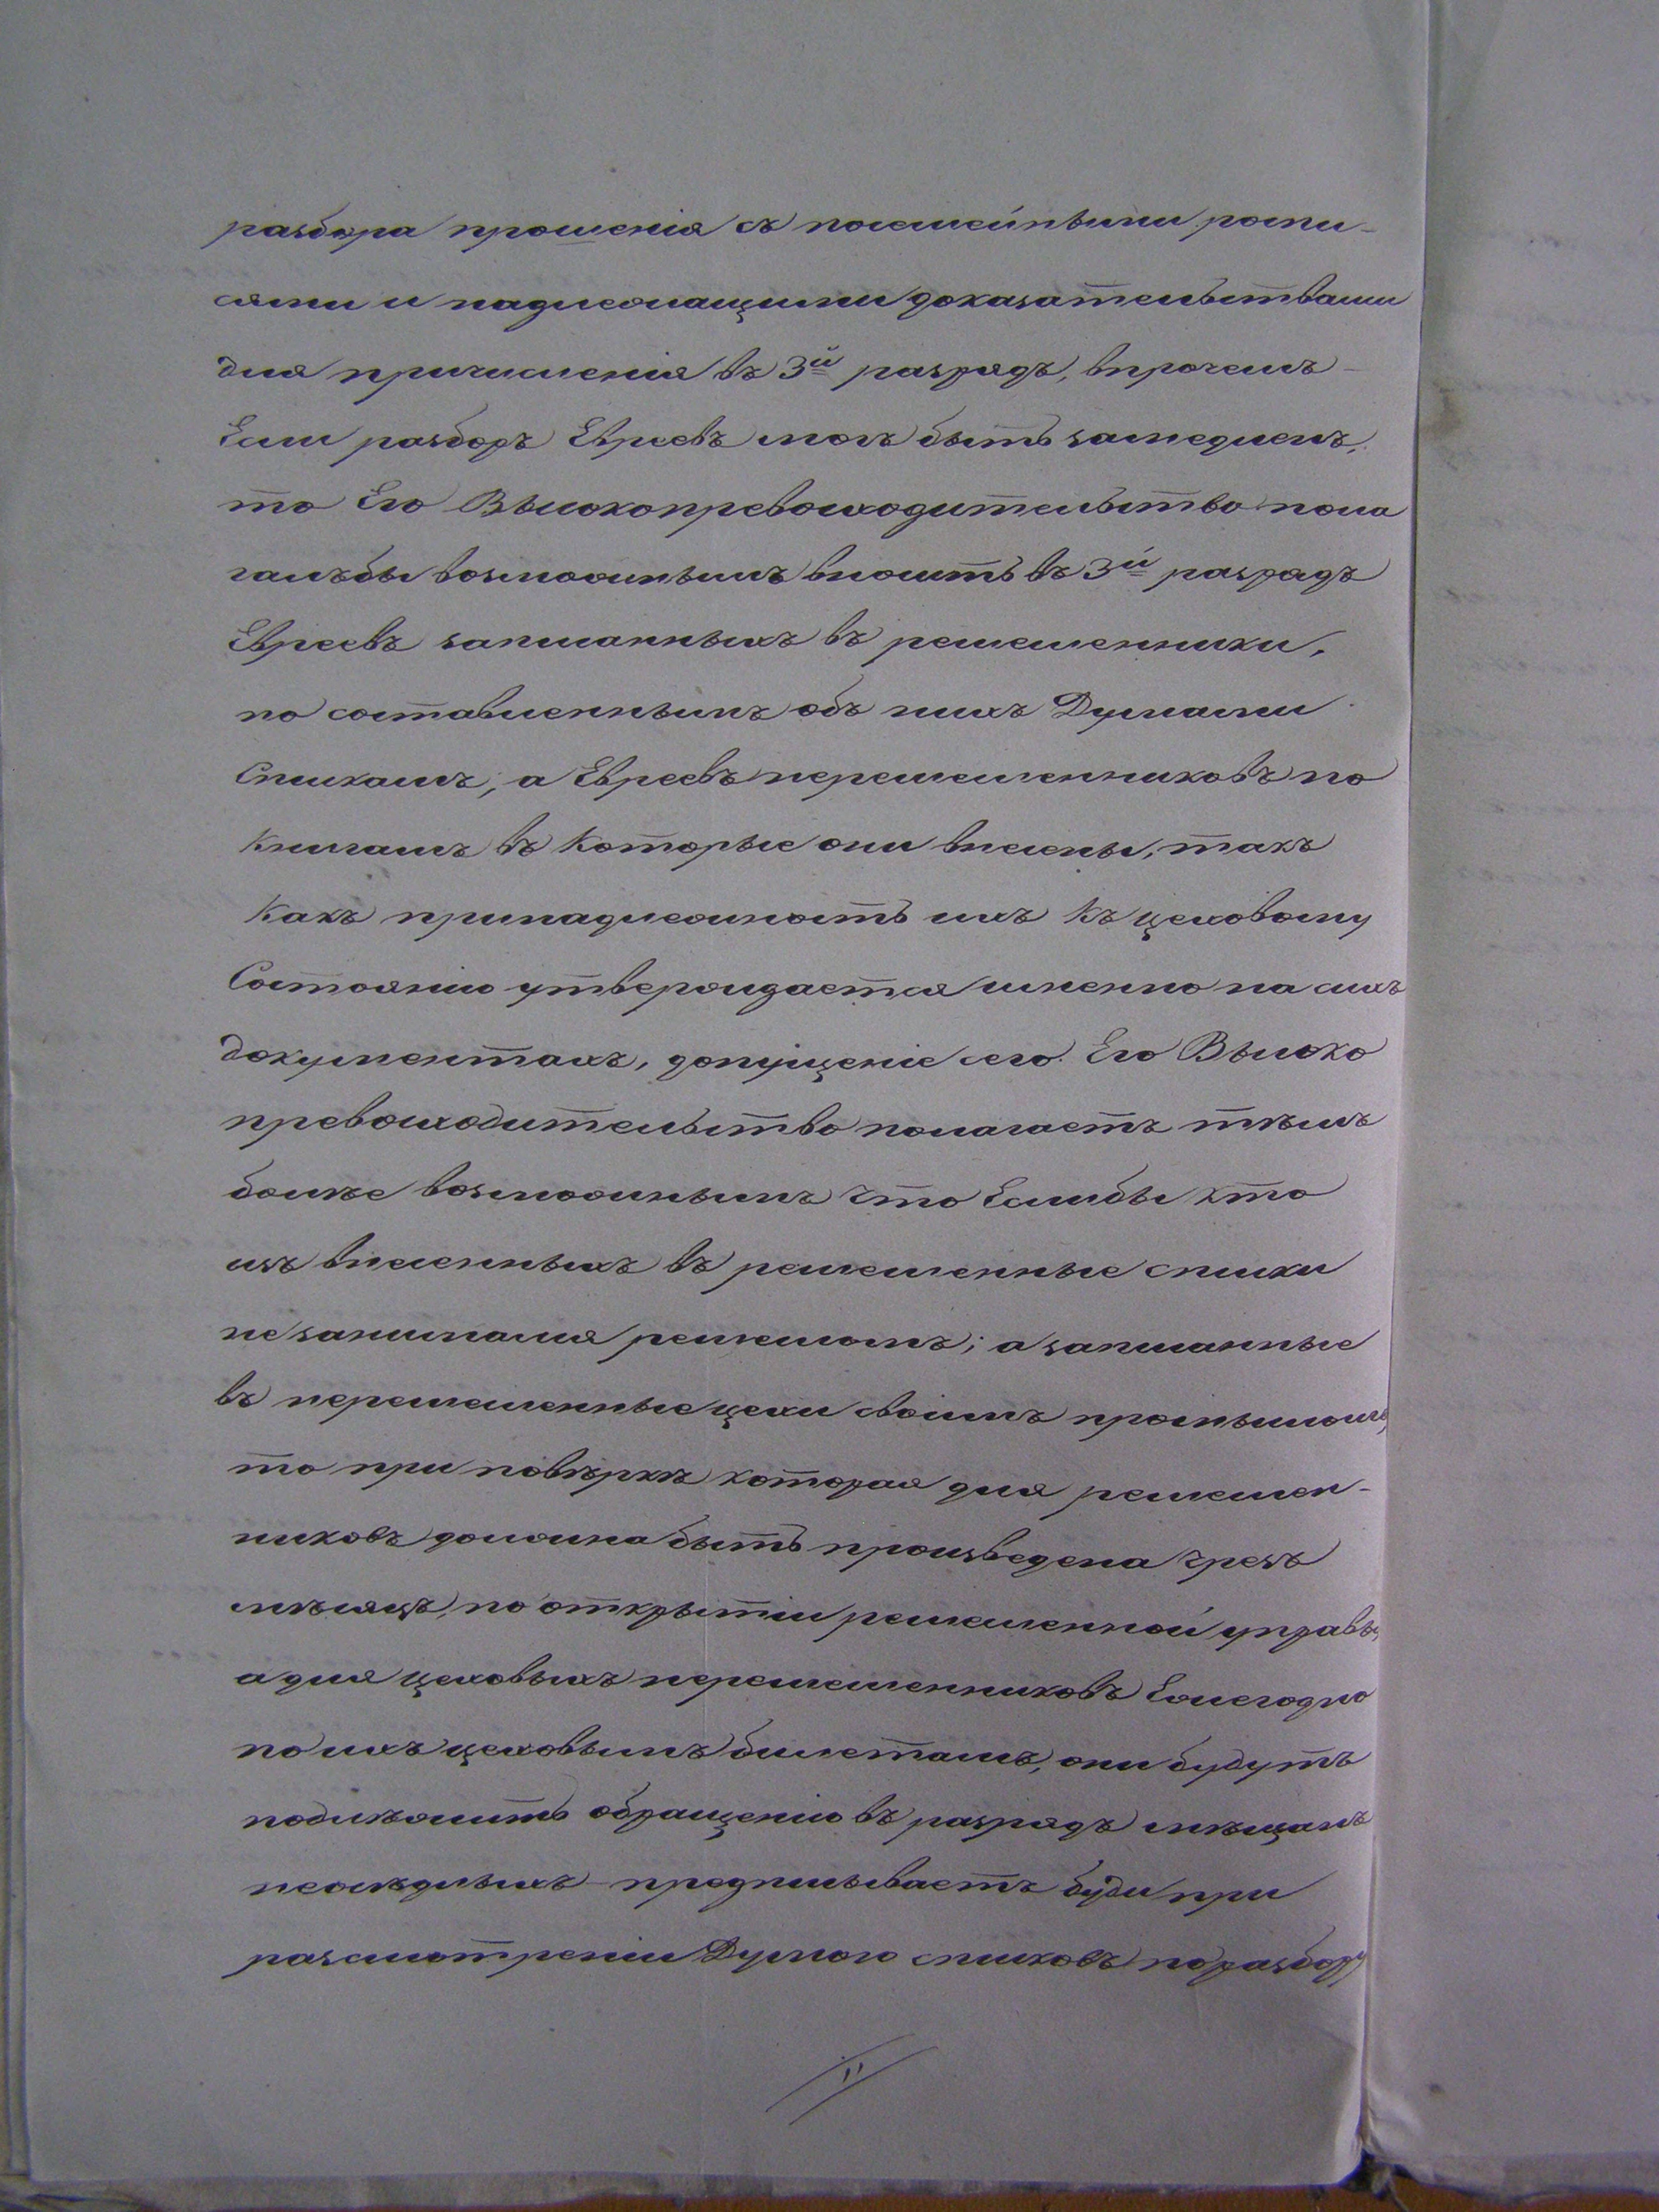 разбора прошенія съ посемейными роспи-
сями и надлежащими доказательствами
для причисленія въ 3й разрядъ, впрочемъ
Если разборъ Евреевъ могъ быть замедленъ,
то Его Высокопревосходительство пола
галъ бы возможнымъ вносить въ 3й разрядъ
Евреевъ записанныхъ въ ремесленники,
по составленнымъ объ нихъ Думами
Спискамъ, а Евреевъ неремесленниковъ по
Книгамъ въ Которые они внесены, такъ
Какъ принадлежность ихъ Къ цеховому
Состоянію утверждается именно на сихъ
документахъ, допущеніе сего Его Высоко
превосходительство полагаетъ тѣмъ
болѣе возможнымъ что Еслибы кто
изъ внесенныхъ въ ремесленные списки
не занимался ремесломъ; а записанные
въ неремесленные цехи своимъ промысломъ,
то при повѣркѣ которая для ремеслен-
никовъ должна быть произведена чрезъ
мѣсяцъ, по открытіи ремесленной управы,
а для цеховыхъ неремесленниковъ Ежегодно
по ихъ цеховымъ билетамъ, они будутъ
подлѣжить обращенію въ разрядъ мѣщанъ
неосѣдлыхъ - предписываетъ буди при
разсмотреніи Думою списковъ по разбору